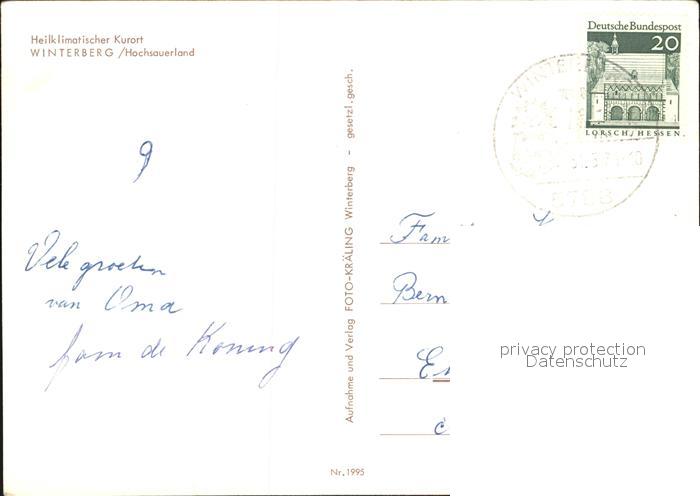 Heilklimatischer Kurort
WINTERBERG /Hochsauerland
Deutsche Bundespost
20
LORSCH/HESSEN
5788
9
Vele groeten
van Oma
fam de Koning
Aufnahme und Verlag FOTO-KRÄLING Winterberg - gesetzl. gesch.
Fam
Bern
privacy protection
Datenschutz
Nr. 1995